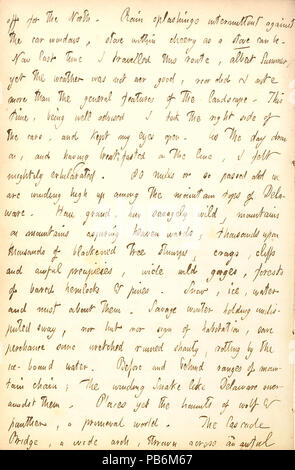 off for the North. Rain splashings intermittent against
the car windows, stove within cheery as a stove can be.
Now last time I travelled this route, albeit Summer,
yet the weather was not over good, nor did I note
more than the general features of the landscape. This
time, being well advised I took the right side of
the cars, and kept my eyes open. As the day drew
on, and having breakfasted on the line, I felt
mightily exhilarated. 80 miles or so passed and we
are winding high up among the mountain tops of Dela-
ware. How grand, how savagely wild, mountains
on mountains aspiring heaven wards, thousands upon
thousands of blackened tree stumps, crags, cliffs
and awful precipices, wide wild gorges, forests
of bared hemlocks & pines. Snow, ice, water
and mist about them. Savage winter holding undis-
puted sway, nor hut nor sign of habitation, save
perchance some wretched ruined shanty, rotting by the
ice-bound water. Before and behind ranges of moun-
tain chain; the winding snake like Delaware over
amidst them. Places yet the haunts of wolf &
panther, a primeval world. The Cascade
Bridge, a wide arch, thrown across an awful
alamy
Image ID: PB6M67
www.alamy.com